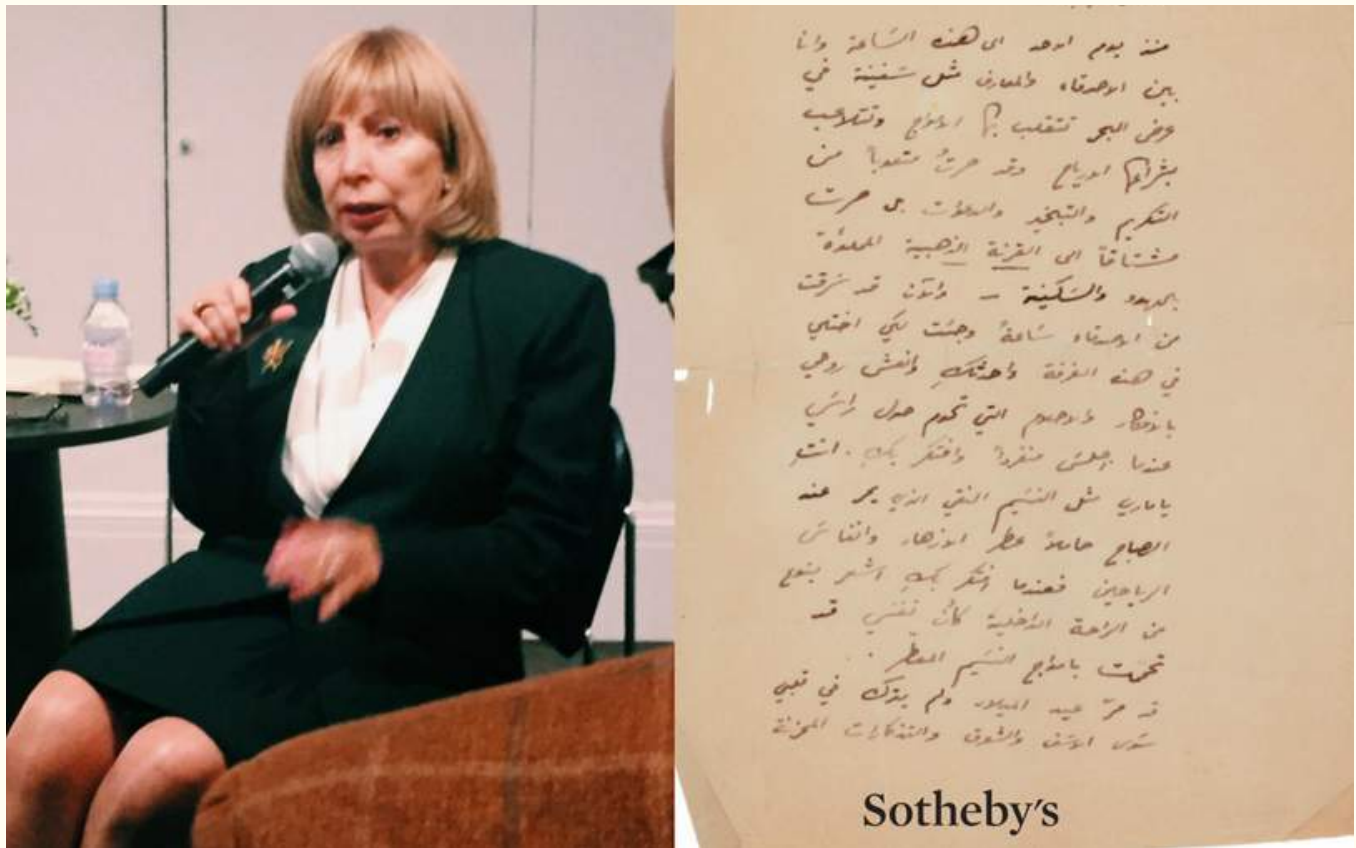 منذ يوم الاحد الى هذه السَّاعة وانا
بين الاصدقاء والمعارف مثل سَفينة في
عرض البحر تتقلب بها الامواج وتتلاعب
بشراعها الارياح وقد صرتُ متعوباً من
التكريم والتبخير والدعوات بل صرت
مشتاقاً الى القرنة الذهبية المملوءة
بالهدوء والسَّكينة – والآن قد سَرقت
من الاصدقاء سَاعةً وجئت لكي اختلي
في هذه الغرفة واحدثكِ وانعش روحي
بالافكار والاحلام التي تحوم حول راسَي
عندما اجلسَ منفرداً وافتكر بكِ. انتِ
ياماري مثل النسَيم النقي الذي يمر عند
الصباح حاملاً عطر الازهار وانفاسَ
الرياحين فعندما افتكر بكِ اشعر بنوع
من الراحة الداخلية كأن نفسَي قد
تحممت بامواج النسَيم المعطر.
قد مرّ عيد الميلاد ولم يترك في قلبي
سَوى الاسَف والشوق والتذكارات المحزنة
Sotheby's